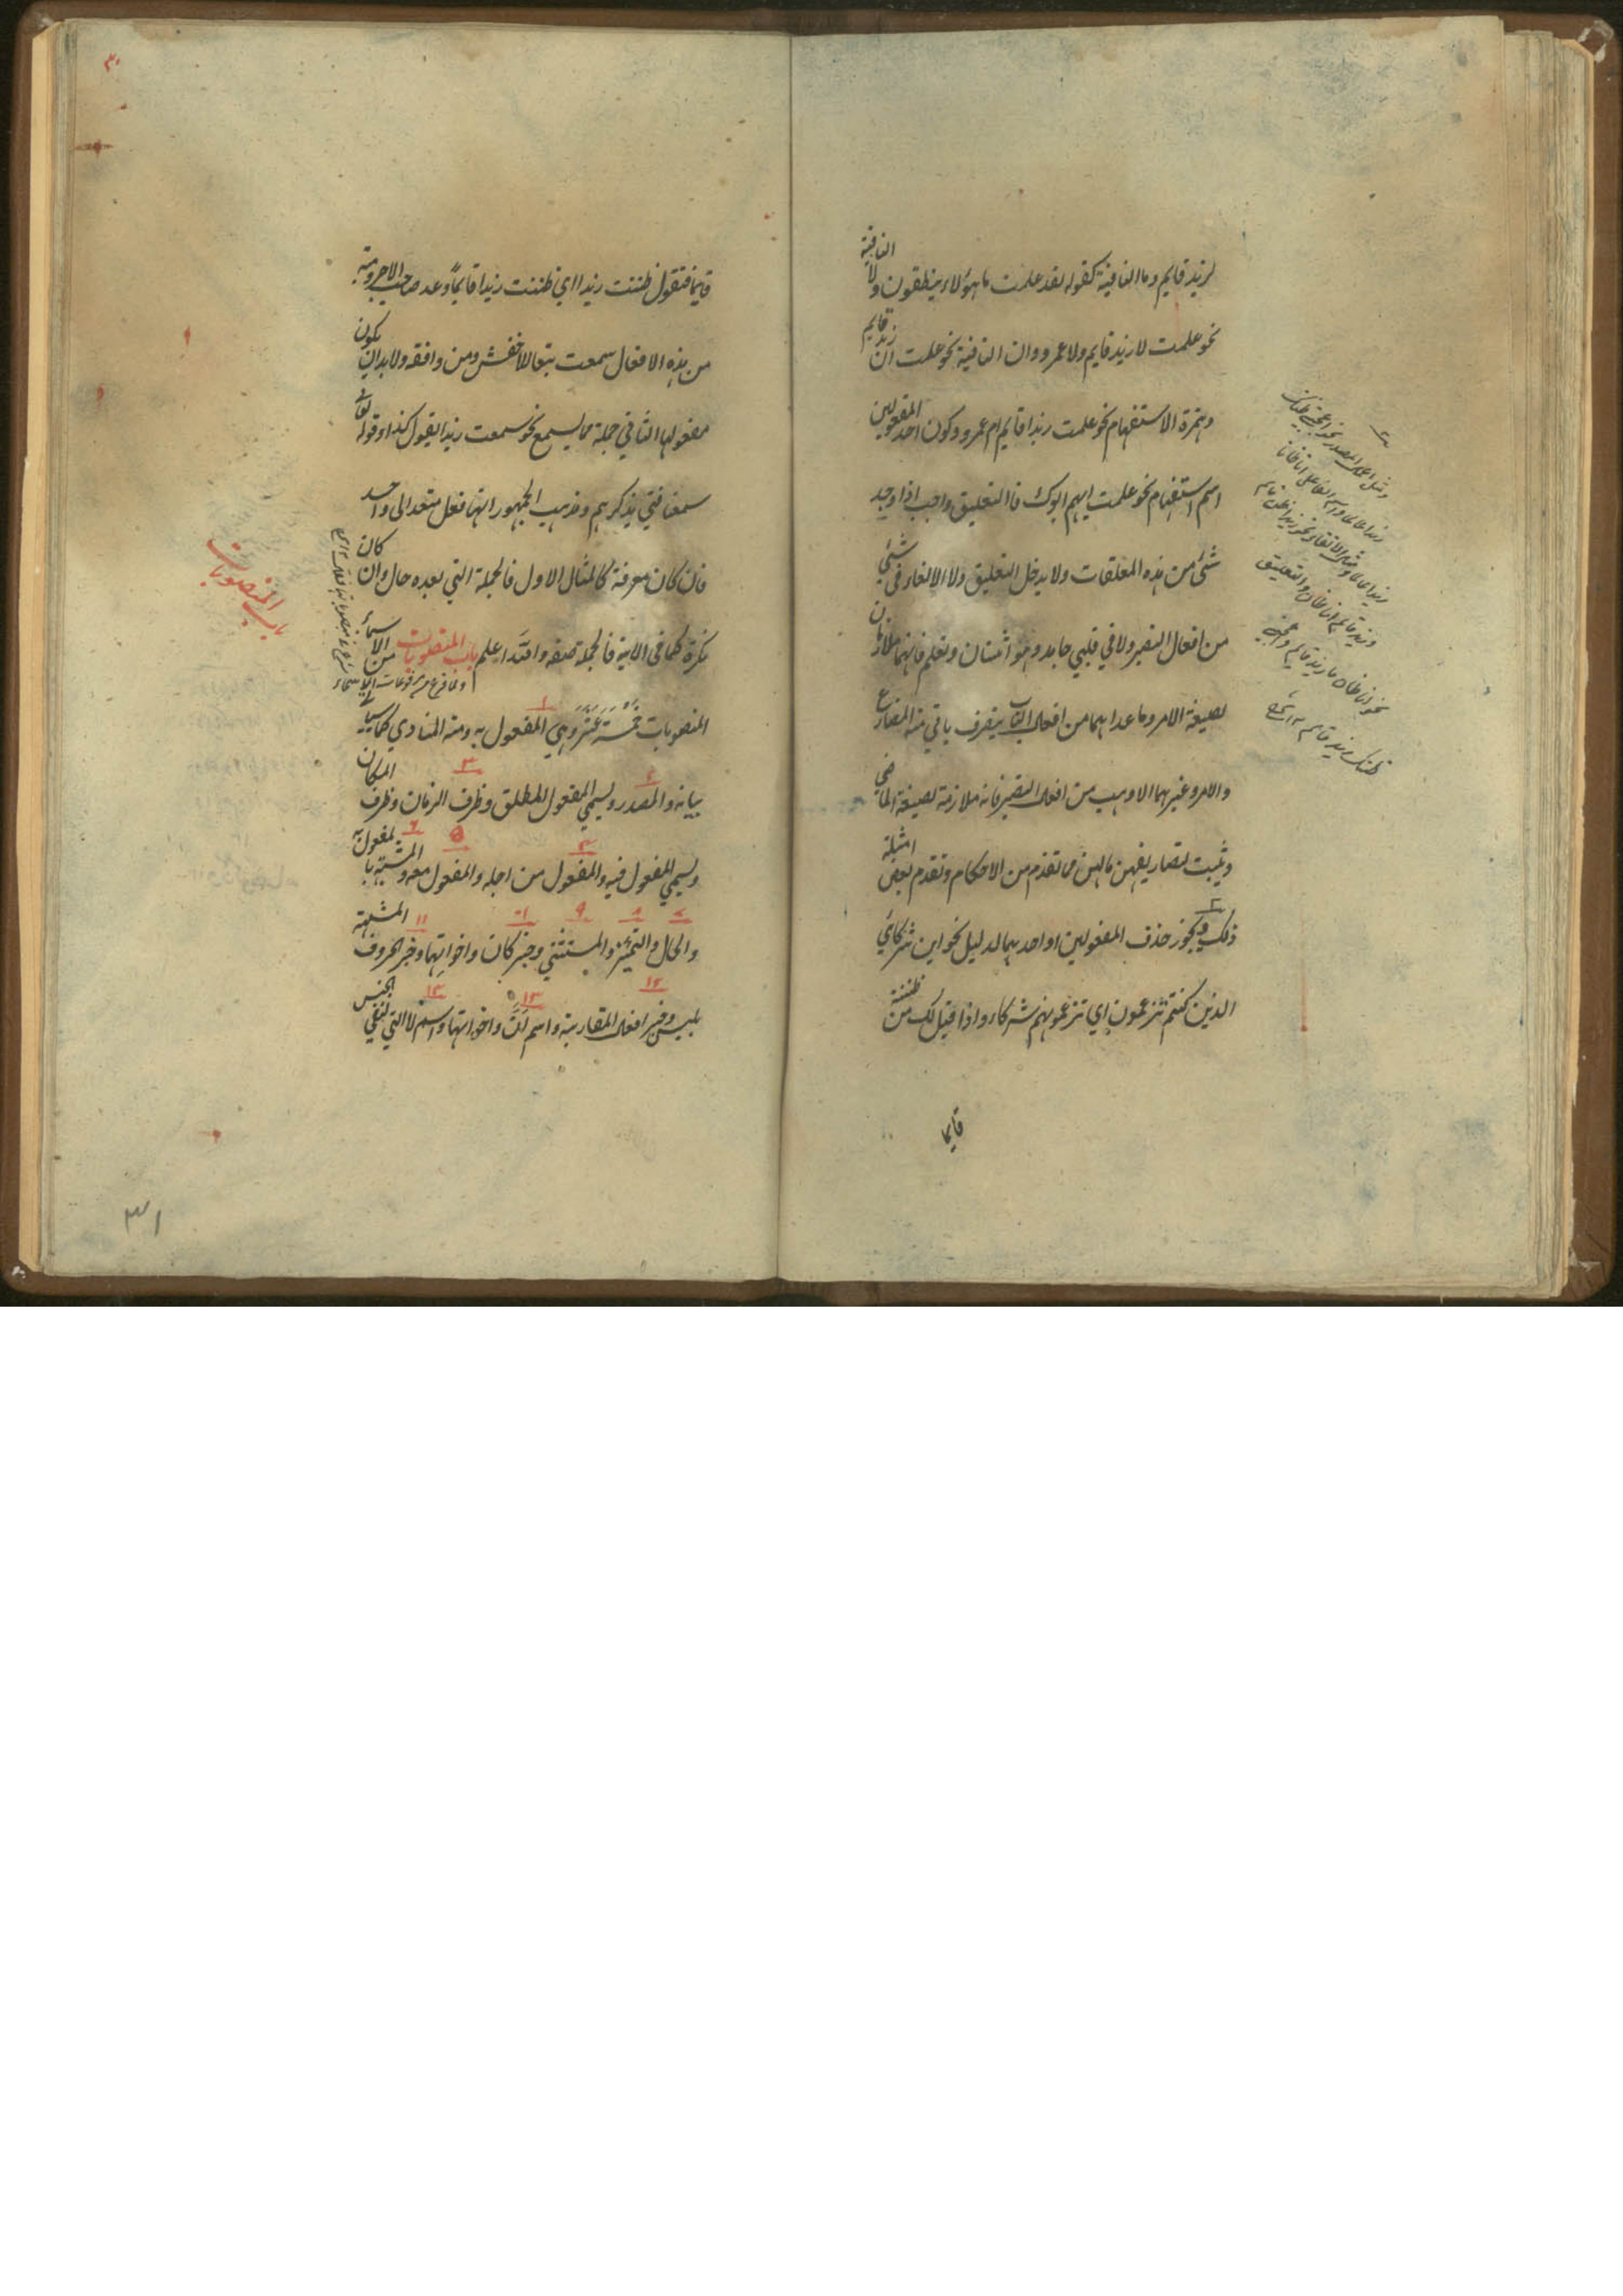 لزيد قايم وما النافية كقوله لقد علمت ما هؤلاء ينطقون ولا النافية
نحو علمت لا زيد قايم ولا عمرو وان النافية نحو علمت ان زيد قايم
وهمزة الاستفهام نحو علمت زيدا قايم ام عمرو وكون احد المفعولين
اسم استفهام نحو علمت ايهم ابوك فا التعليق واجب اذا وجد
شئ من هذه المعلقات ولا يدخل التعليق ولا الالغاء في شئ
من افعال التصير ولا في قلبي جامد وهو اثنتان وتعلم فانهما ملازمان
لصيغة الامر وما عداهما من افعال الباب يتصرف ياتي منه المضارع
والامر وغيرهما الا وهب من افعال التصير فانه ملازمة لصيغة الماضي
ويثبت لتصاريفهن ما لهن مما تقدم من الاحكام وتقدم بعض امثلة
ذلك ويجوز حذف المفعولين او احدهما لدليل نحو اين شركائي
الذين كنتم تزعمون اي تزعمونهم شركاء واذا قيل لك من ظننته
قايما
قايما فتقول ظننت زيدا اي ظننت زيدا قايماً وعد صاحب الاجرومية
من هذه الافعال سمعت تبعا للاخفش ومن وافقه ولا بد ان يكون
مفعولها الثاني جملة مما يسمع نحو سمعت زيدا يقول كذا وقوله تعالى
سمعنا فتي يذكرهم ومذهب الجمهور انها فعل متعد الى واحد
فان كان معرفة كالمثال الاول فالجملة التي بعده حال وان كان
نكرة كما في الاية فالجملة صفة والله اعلم باب المنصوبات من الاسماء
المنصوبات خمسة عشر وهي المفعول به ومنه المنادي كما سياتي
بيانه والمصدر ويسمي المفعول المطلق وظرف الزمان وظرف المكان
ويسمي المفعول فيه والمفعول من اجله والمفعول معه والمشبه بالمفعول به
والحال والتميز والمستثني وخبر كان واخواتها وخبر الحروف المشبهة
بليس وخبر افعال المقاربة واسم ان واخواتها واسم لا التي لنفي الجنس
باب المنصوبات
٣١